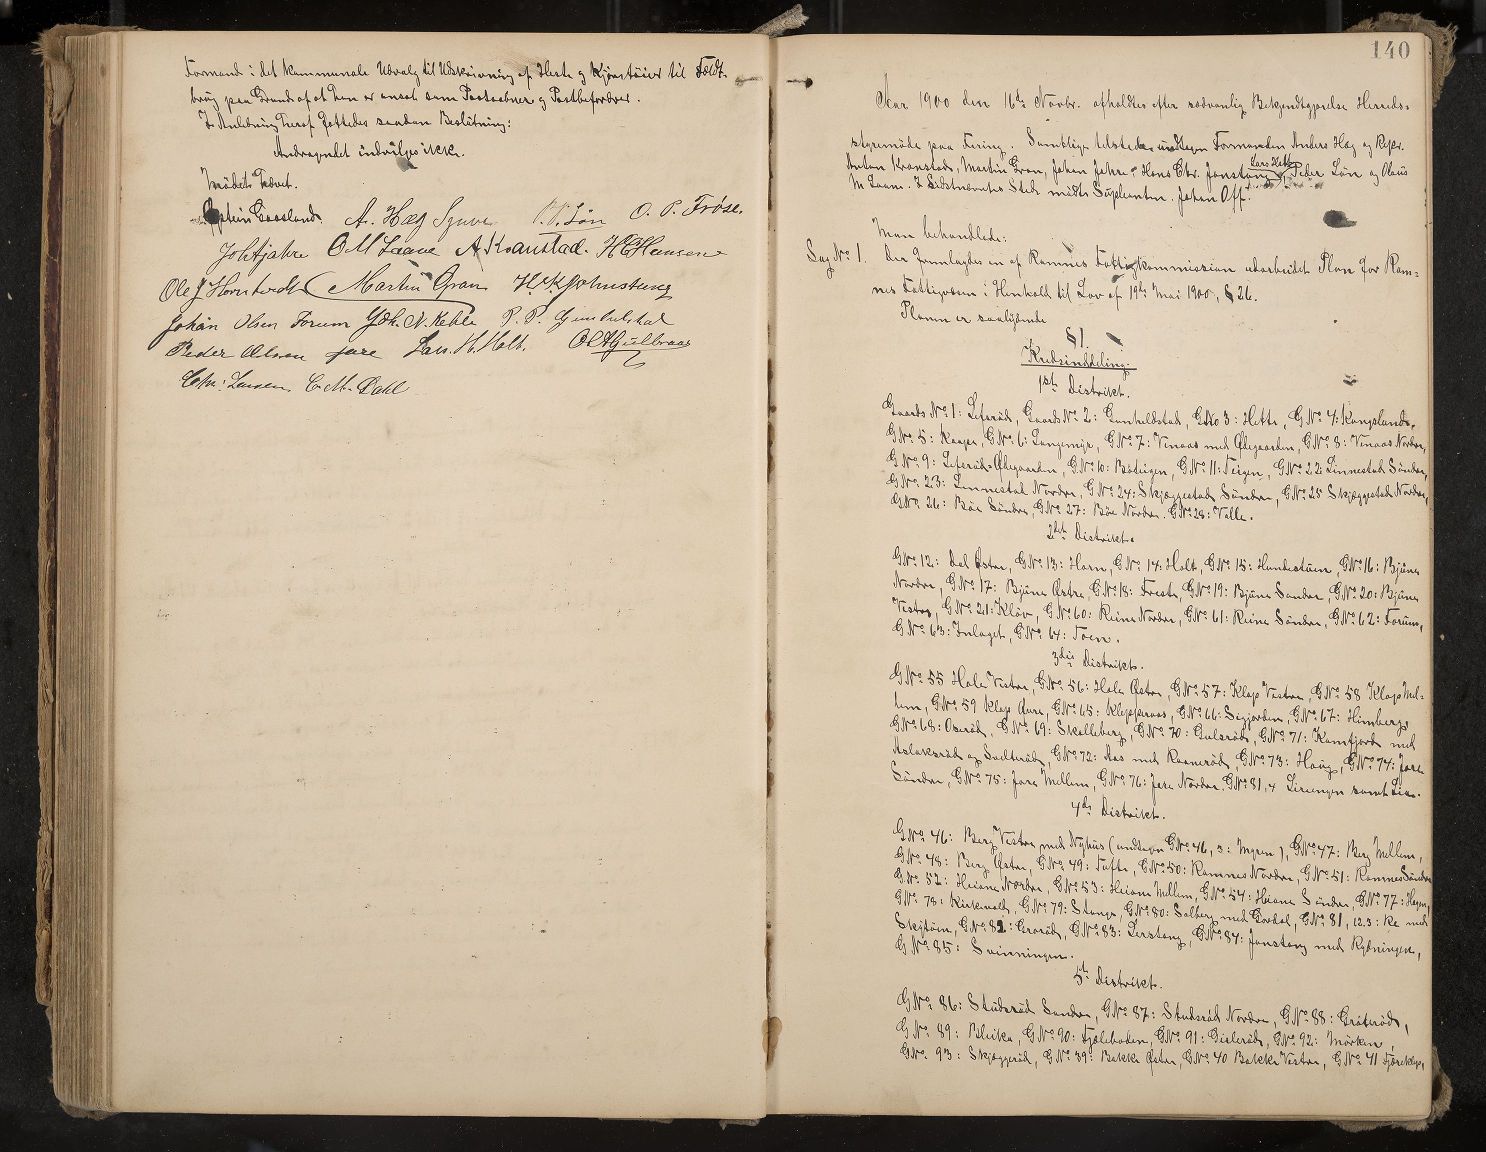 Formand i det kommunale Udvalg til Udskrivning af Heste og Kjøretøier til Feldt-
brug paa Grund af at han er ansat som Postaabner og Postbefordrer.
I Anledning heraf fattedes saadan Beslutning:
Andragendet indvilges ikke.
Mødet hævet.
A. Hæg P. P. Løn O. P. Frøse.
Joh Fjahre O M Laane A Kranstad. H C Hansen
Ole J Horntvedt Martin Gran H. K. Johnstang
Johan Olsen Forum Joh. N. Kehle P. P.
Peder Olsen Jare Lars. H. Holt. Ol A Gulbraar
Chr: Larsen. C. M. Dahl
140
Aar 1900 den 16de Novbr. afholdtes efter sædvanlig Bekjendtgjørelse Herreds-
styremøde paa Fering. Samtlige tilstede undtagen Formanden Anders Hæg og Repr.
Lars Holt
Anton Kranstad, Martin Gran, Johan Jahre, Hans Chr. Jonstang, Peder Løn og Olaus
M Laane. I Sidstnævntes Sted mødte Suppleanten Johan Off.
Man behandlede:
Sag No 1. Der fremlagdes en af Ramnes Fattigkommission udarbeidet Plan for Ram-
nes Fattigvæsen i Henhold til Lov af 19de Mai 1900, § 26.
Planen er saalydende
§ 1.
Kredsinddeling.
1ste Distrikt.
Gaards No 1: Lefsrød, Gaards No 2: Gunheldstad, GNo 3: Hette, G.No 4: Kongslands.
GNo 5: Kaape, GNo 6: Langemyr, GNo 7: Vinaas med Ødegaarden, GNo 8: Vinaas Nordre,
GNo 9: Lefsrød-Ødegaarden, GNo 10: Bøteigen, GNo 11: Teigen, GNo 22: Linnestad Søndre,
GNo 23: Linnestad Nordre, GNo 24: Skjæggestad Søndre, GNo 25 Skjæggestad Nordre,
GNo 26: Bøe Søndre, GNo 27: Bøe Nordre. GNo 28: Valle.
2det Distrikt.
GNo 12: Dal Østre, GNo 13: Horn, GNo 14: Holt, GNo 15: Hundestuen, GNo 16: Bjune
Nordre, GNo 17: Bjune Østre, GNo 18: Freste, GNo 19: Bjune Søndre, GNo 20: Bjune
Vestre, GNo 21: Kløv, GNo 60: Reine Nordre, GNo 61: Reine Søndre, GNo 62: Forum,
GNo 63: Inlaget, GNo 64: Toen.
3die Distrikt.
GNo 55 Holen Vestre, GNo 56: Holen Østre, GNo 57: Klop Vestre, GNo 58 Klop Mel-
lem, GNo 59 Klop Øvre, GNo 65: Kleppanaas, GNo 66: Sigjorden, GNo 67: Himberg,
GNo 68: Oserød, GNo 69: Skalleberg, GNo 70: Gulsrød, GNo 71: Kamfjord med
Aslaksrød og Sælterød, GNo 72: Aas med Raanerød, GNo 73: Haug, GNo 74: Jare
Søndre, GNo 75: Jare Mellem, GNo 76: Jare Nordre, GNo 81,4 Lerungen samt Lian.
4de Distrikt.
GNo 46: Berg Vestre med Nyhus (undtagen GNo 46, 3: Myren), GNo 47: Berg Mellem,
GNo 48: Berg Østre, GNo 49: Tufte, GNo 50: Ramnes Nordre, GNo 51: Ramnes Søndre
GNo 52: Heiane Nordre, GNo 53: Heiane Mellem, GNo 54: Heiane Søndre, GNo 77: Hagen,
GNo 78: Kirkevold, GNo 79: Stange, GNo 80: Solberg med Gordal, GNo 81, 12.3: Re med
Skytøen, GNo 82: Grorød, GNo 83: Lerstang, GNo 84: Jonstang med Rydningen,
GNo 85: Svinningen.
5te Distrikt.
GNo 86: Studsrød Søndre, GNo 87: Studsrød Nordre, GNo 88: Gråterød,
GNo 89: Bleika, GNo 90: Fjæleboden, GNo 91: Gislerød, GNo 92: Mørken,
GNo 93: Skjæggerød, GNo 39: Bakke Østre, GNo 40 Bakke Vestre, GNo 41 Fjæreklep,